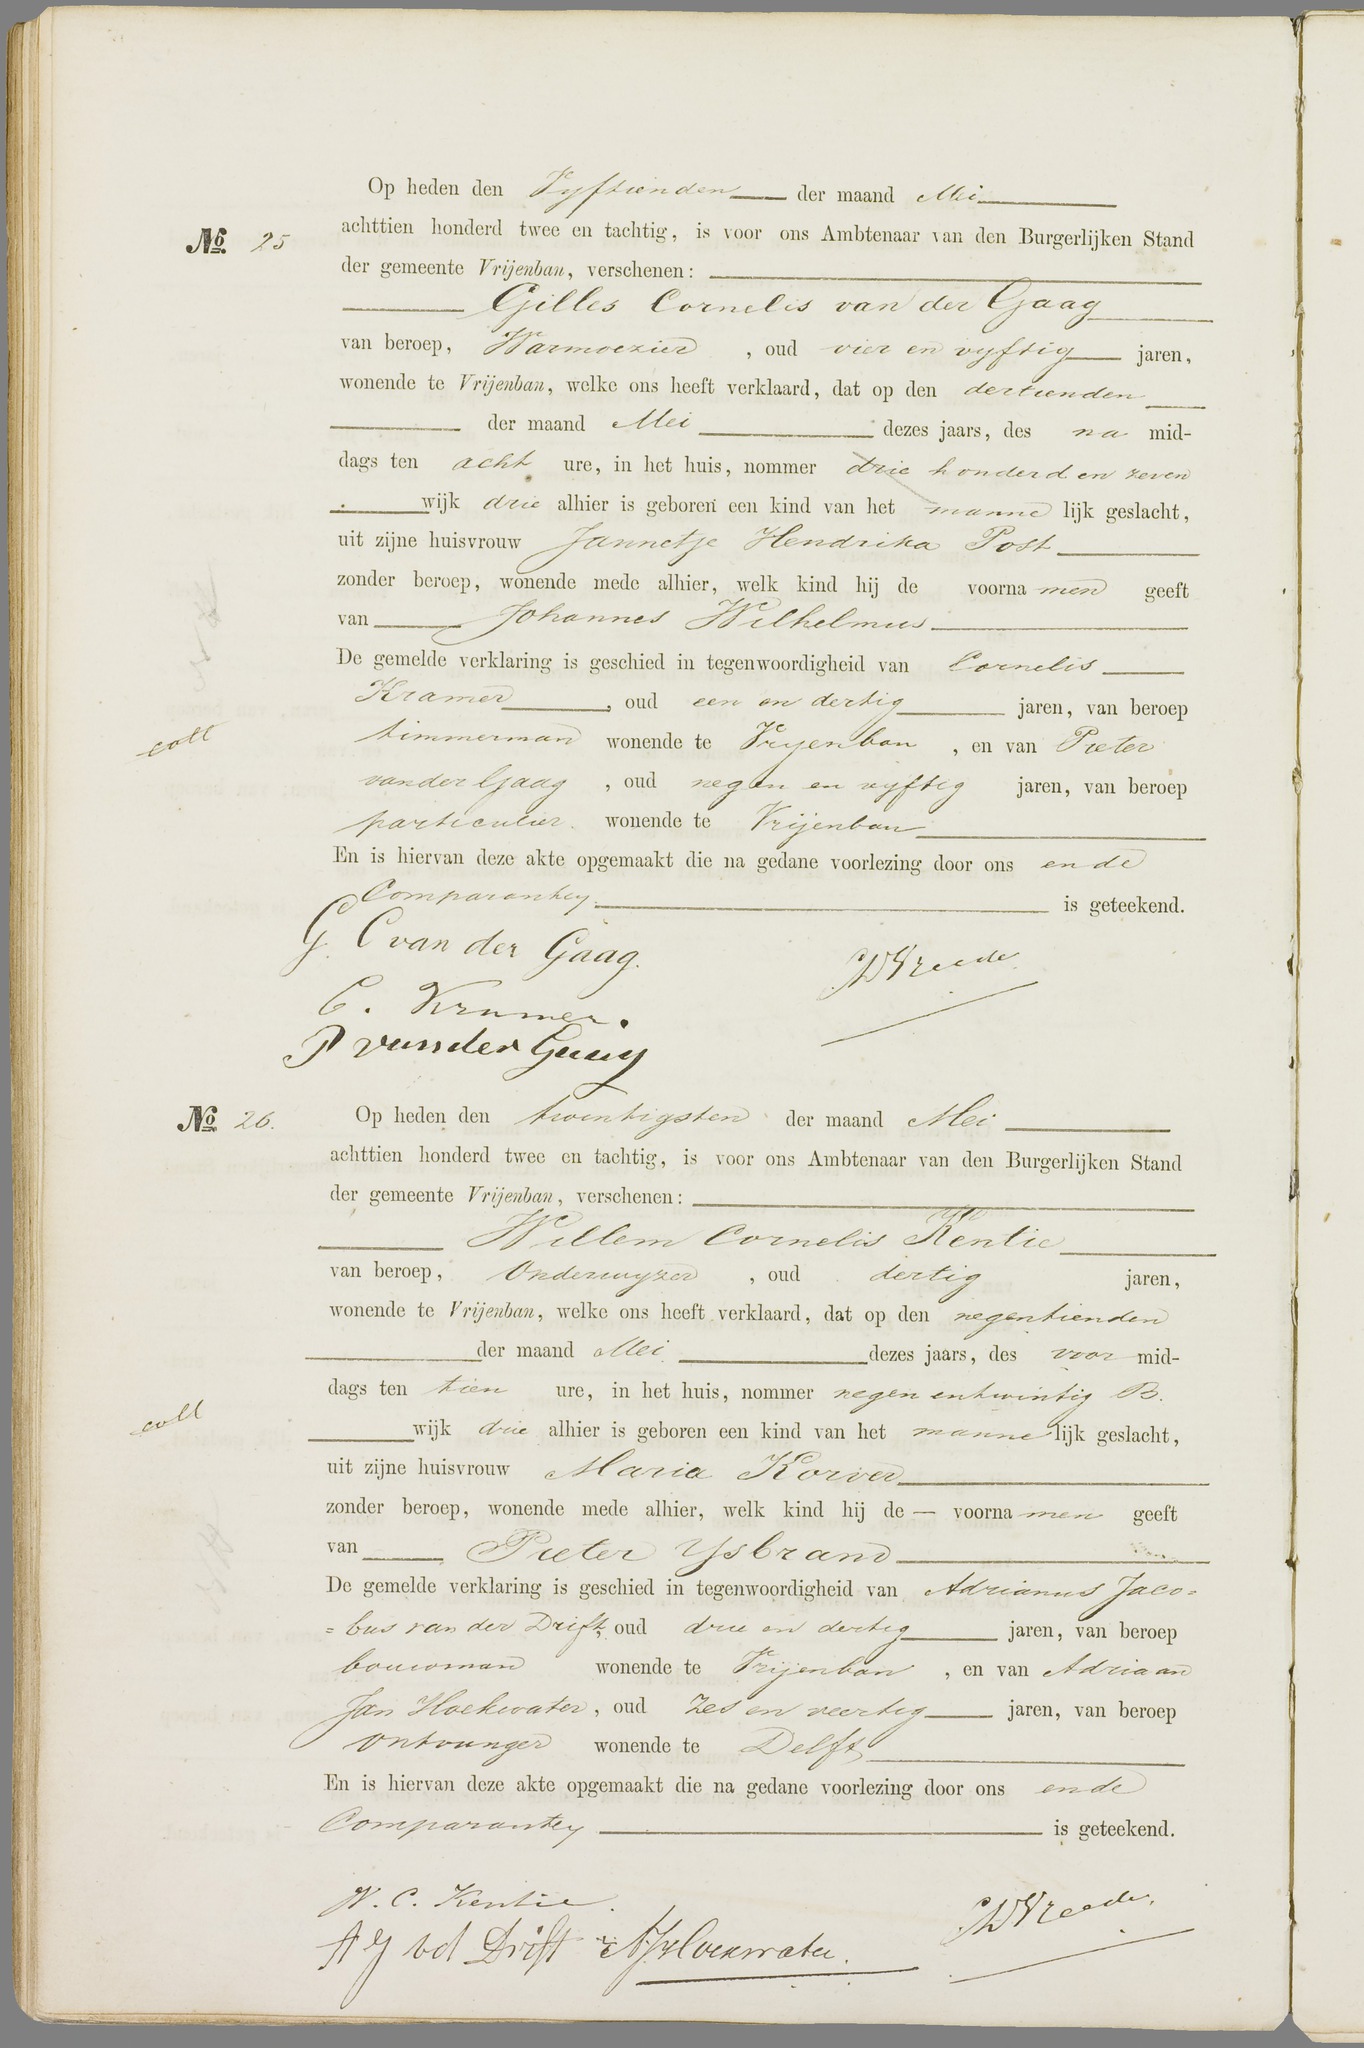 Op heden den Vyftienden der maand Mei
No. 25
achttien honderd twee en tachtig, is voor ons Ambtenaar van den Burgerlijken Stand
der gemeente Vrijenban, verschenen:
Gilles Cornelis van der Gaag
van beroep, Warmoezier, oud vier en vyftig jaren,
wonende te Vrijenban, welke ons heeft verklaard, dat op den dertienden
der maand Mei dezes jaars, des na mid-
dags ten acht ure, in het huis, nommer drie honderd en zeven
wijk drie alhier is geboren een kind van het manne lijk geslacht,
uit zijne huisvrouw Jannetje Hendrika Post
zonder beroep, wonende mede alhier, welk kind hij de voorna men geeft
van Johannes Wilhelmus
De gemelde verklaring is geschied in tegenwoordigheid van Cornelis
Kramer, oud een en dertig jaren, van beroep
coll
timmerman wonende te Vryenban, en van Pieter
van der Gaag, oud negen en vyftig jaren, van beroep
particulier wonende te Vrijenban
En is hiervan deze akte opgemaakt die na gedane voorlezing door ons en de
Comparanten is geteekend.
G. C van der Gaag.
C. Kramer.
P van der Gaag
No. 26.
Op heden den twintigsten der maand Mei
achttien honderd twee en tachtig, is voor ons Ambtenaar van den Burgerlijken Stand
der gemeente Vrijenban, verschenen:
Willem Cornelis Kentie
van beroep, Onderwyzer, oud dertig jaren,
wonende te Vrijenban, welke ons heeft verklaard, dat op den negentienden
der maand Mei dezes jaars, des voor mid-
dags ten tien ure, in het huis, nommer negen en twintig B.
coll
wijk drie alhier is geboren een kind van het manne lijk geslacht,
uit zijne huisvrouw Maria Korver
zonder beroep, wonende mede alhier, welk kind hij de — voorna men geeft
van Pieter Ysbrand
De gemelde verklaring is geschied in tegenwoordigheid van Adrianus Jaco=
=bus van der Drift, oud drie en dertig jaren, van beroep
bouwman wonende te Vrijenban, en van Adriaan
Jan Hoekwater, oud zes en veertig jaren, van beroep
Ontvanger wonende te Delft
En is hiervan deze akte opgemaakt die na gedane voorlezing door ons en de
Comparanten is geteekend.
W. C. Kentie.
A J vd Drift A J Hoekwater.